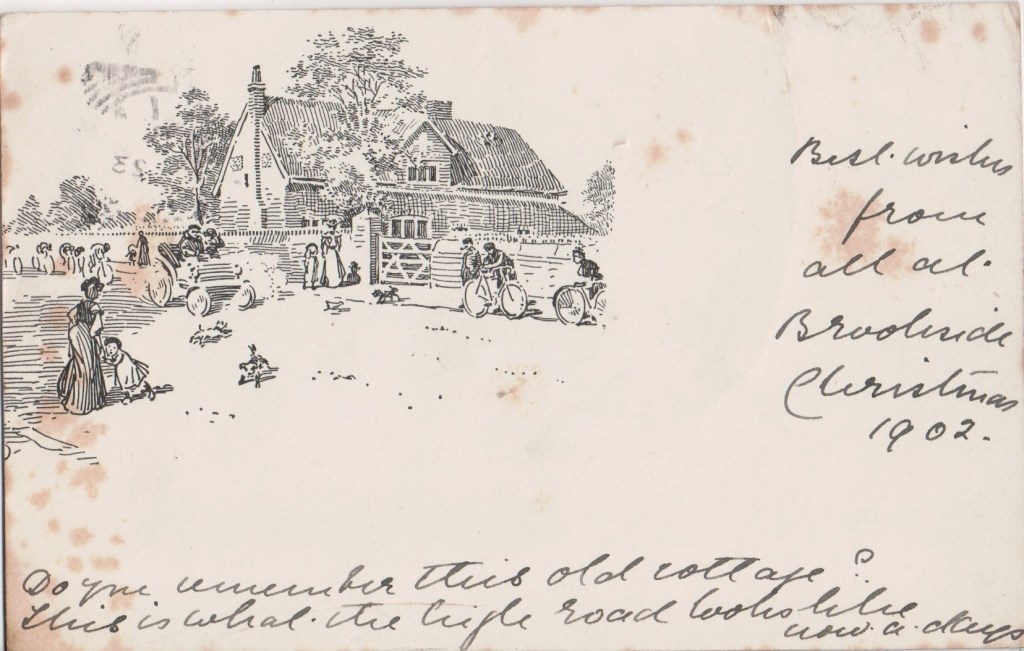 Best wishes
from
all at
Brookside
Christmas
1902.
Do you remember this old cottage?
This is what the high road looks like
now-a-days
23